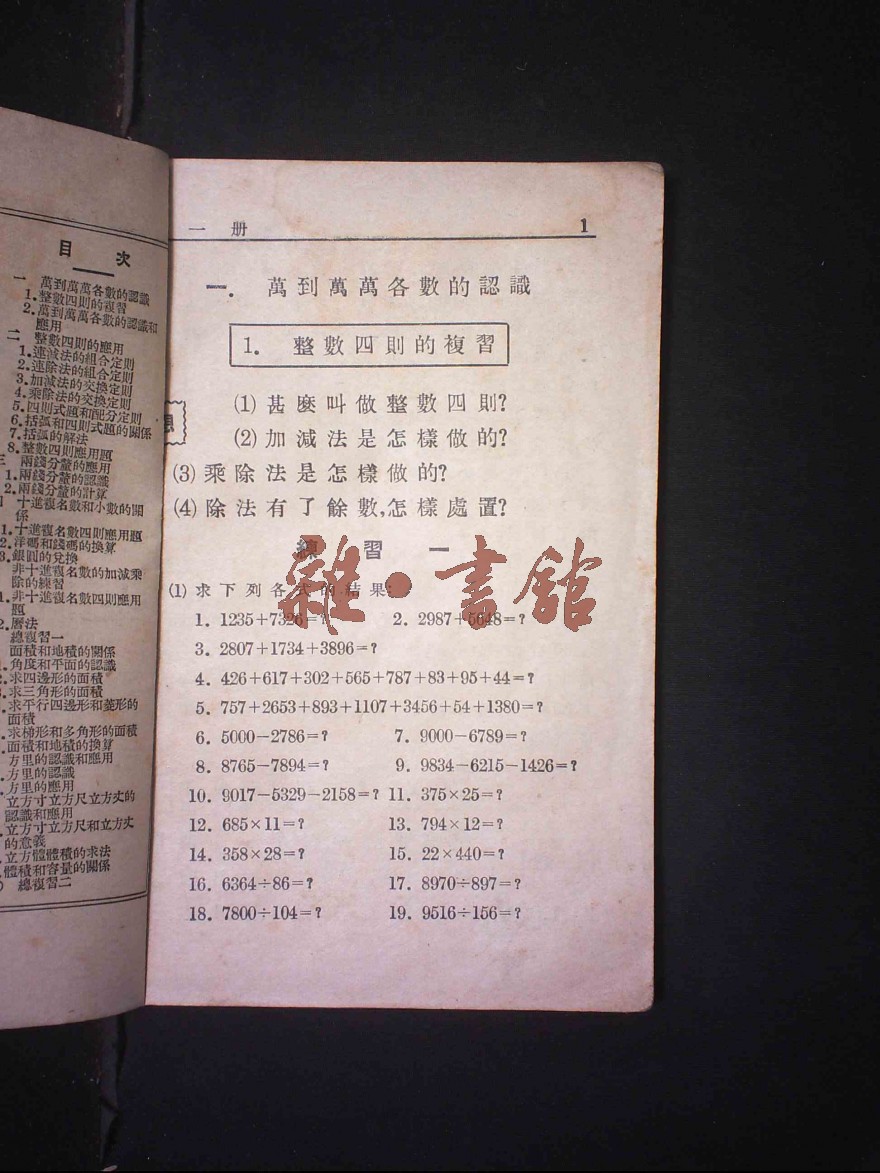 目次
一 萬到萬萬各數的認識
1.整數四則的複習
2.萬到萬萬各數的認識和
應用
二 整數四則的應用
1.連減法的組合定則
2.連除法的組合定則
3.加減法的交換定則
4.乘除法的交換定則
5.四則式題和配分定則
6.括弧和四則式題的關係
7.括弧的解法
8.整數四則應用題
三 兩錢分釐的應用
1.兩錢分釐的認識
2.兩錢分釐的計算
十進複名數和小數的關
係
1.十進複名數四則應用題
2.洋碼和錢碼的換算
3.銀圓的兌換
非十進複名數的加減乘
除的練習
1.非十進複名數四則應用
題
2.曆法
總複習一
面積和地積的關係
角度和平面的認識
求四邊形的面積
求三角形的面積
求平行四邊形和菱形的
面積
求梯形和多角形的面積
面積和地積的換算
方里的認識和應用
方里的認識
方里的應用
立方寸立方尺立方丈的
認識和應用
立方寸立方尺和立方丈
的意義
立方體體積的求法
體積和容量的關係
總複習二
一 册 1
一. 萬到萬萬各數的認識
1. 整數四則的複習
(1) 甚麼叫做整數四則?
(2) 加減法是怎樣做的?
(3) 乘除法是怎樣做的?
(4) 除法有了餘數,怎樣處置?
練習一
雜·書館
(1) 求下列各式的結果:
1. 1235+7326=? 2. 2987+5648=?
3. 2807+1734+3896=?
4. 426+617+302+565+787+83+95+44=?
5. 757+2653+893+1107+3456+54+1380=?
6. 5000-2786=? 7. 9000-6789=?
8. 8765-7894=? 9. 9834-6215-1426=?
10. 9017-5329-2158=? 11. 375×25=?
12. 685×11=? 13. 794×12=?
14. 358×28=? 15. 22×440=?
16. 6364÷86=? 17. 8970÷897=?
18. 7800÷104=? 19. 9516÷156=?